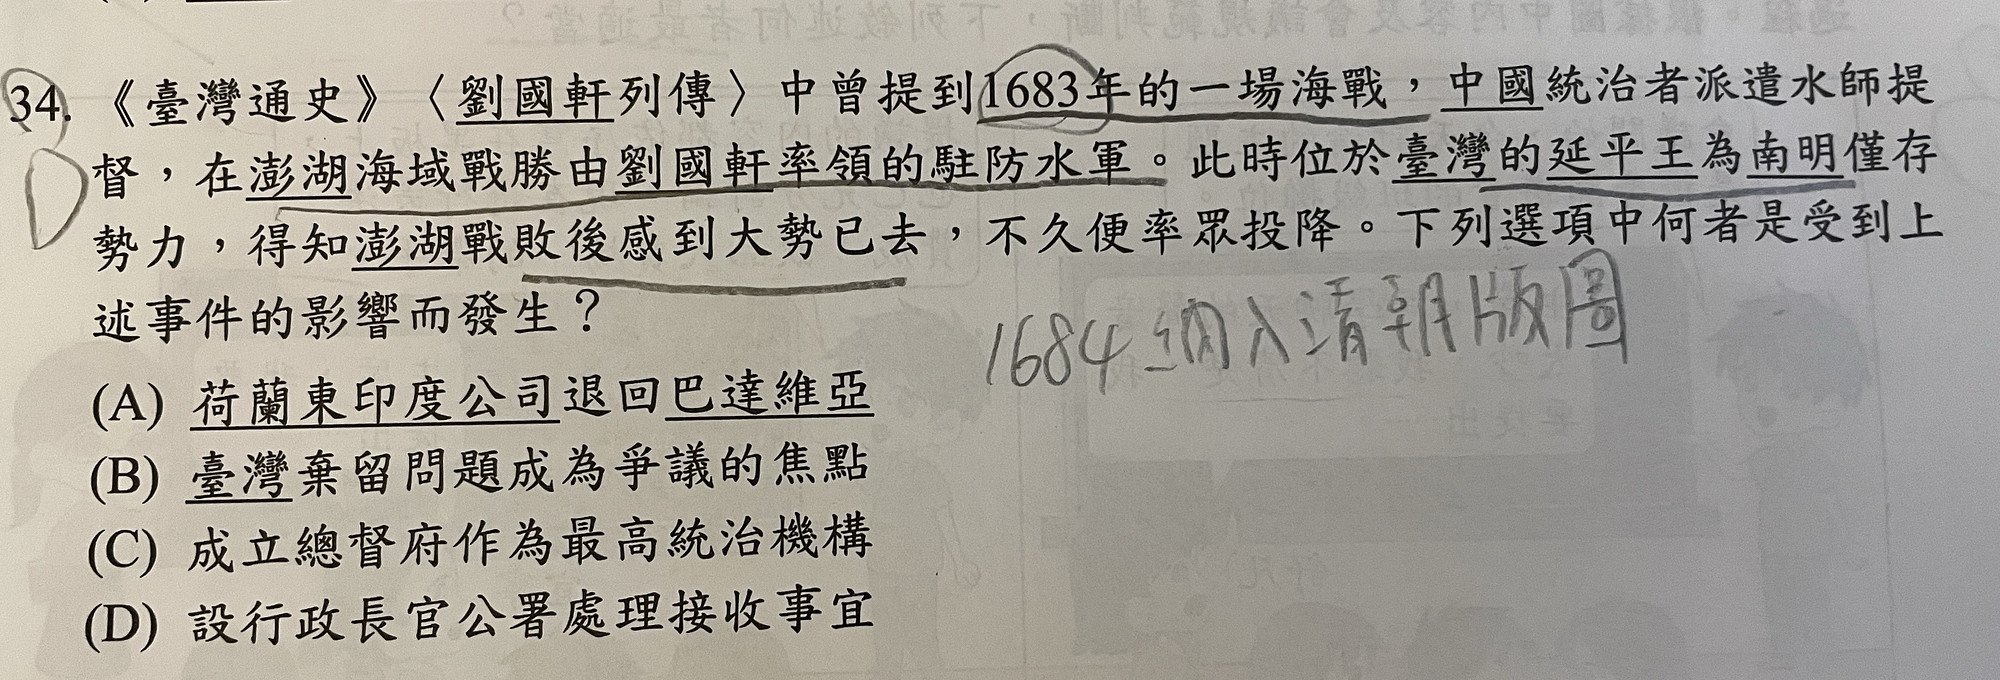 34.《臺灣通史》〈劉國軒列傳〉中曾提到1683年的一場海戰，中國統治者派遣水師提
督，在澎湖海域戰勝由劉國軒率領的駐防水軍。此時位於臺灣的延平王為南明僅存
勢力，得知澎湖戰敗後感到大勢已去，不久便率眾投降。下列選項中何者是受到上
述事件的影響而發生？
1684納入清朝版圖
(A) 荷蘭東印度公司退回巴達維亞
(B) 臺灣棄留問題成為爭議的焦點
(C) 成立總督府作為最高統治機構
(D) 設行政長官公署處理接收事宜
D